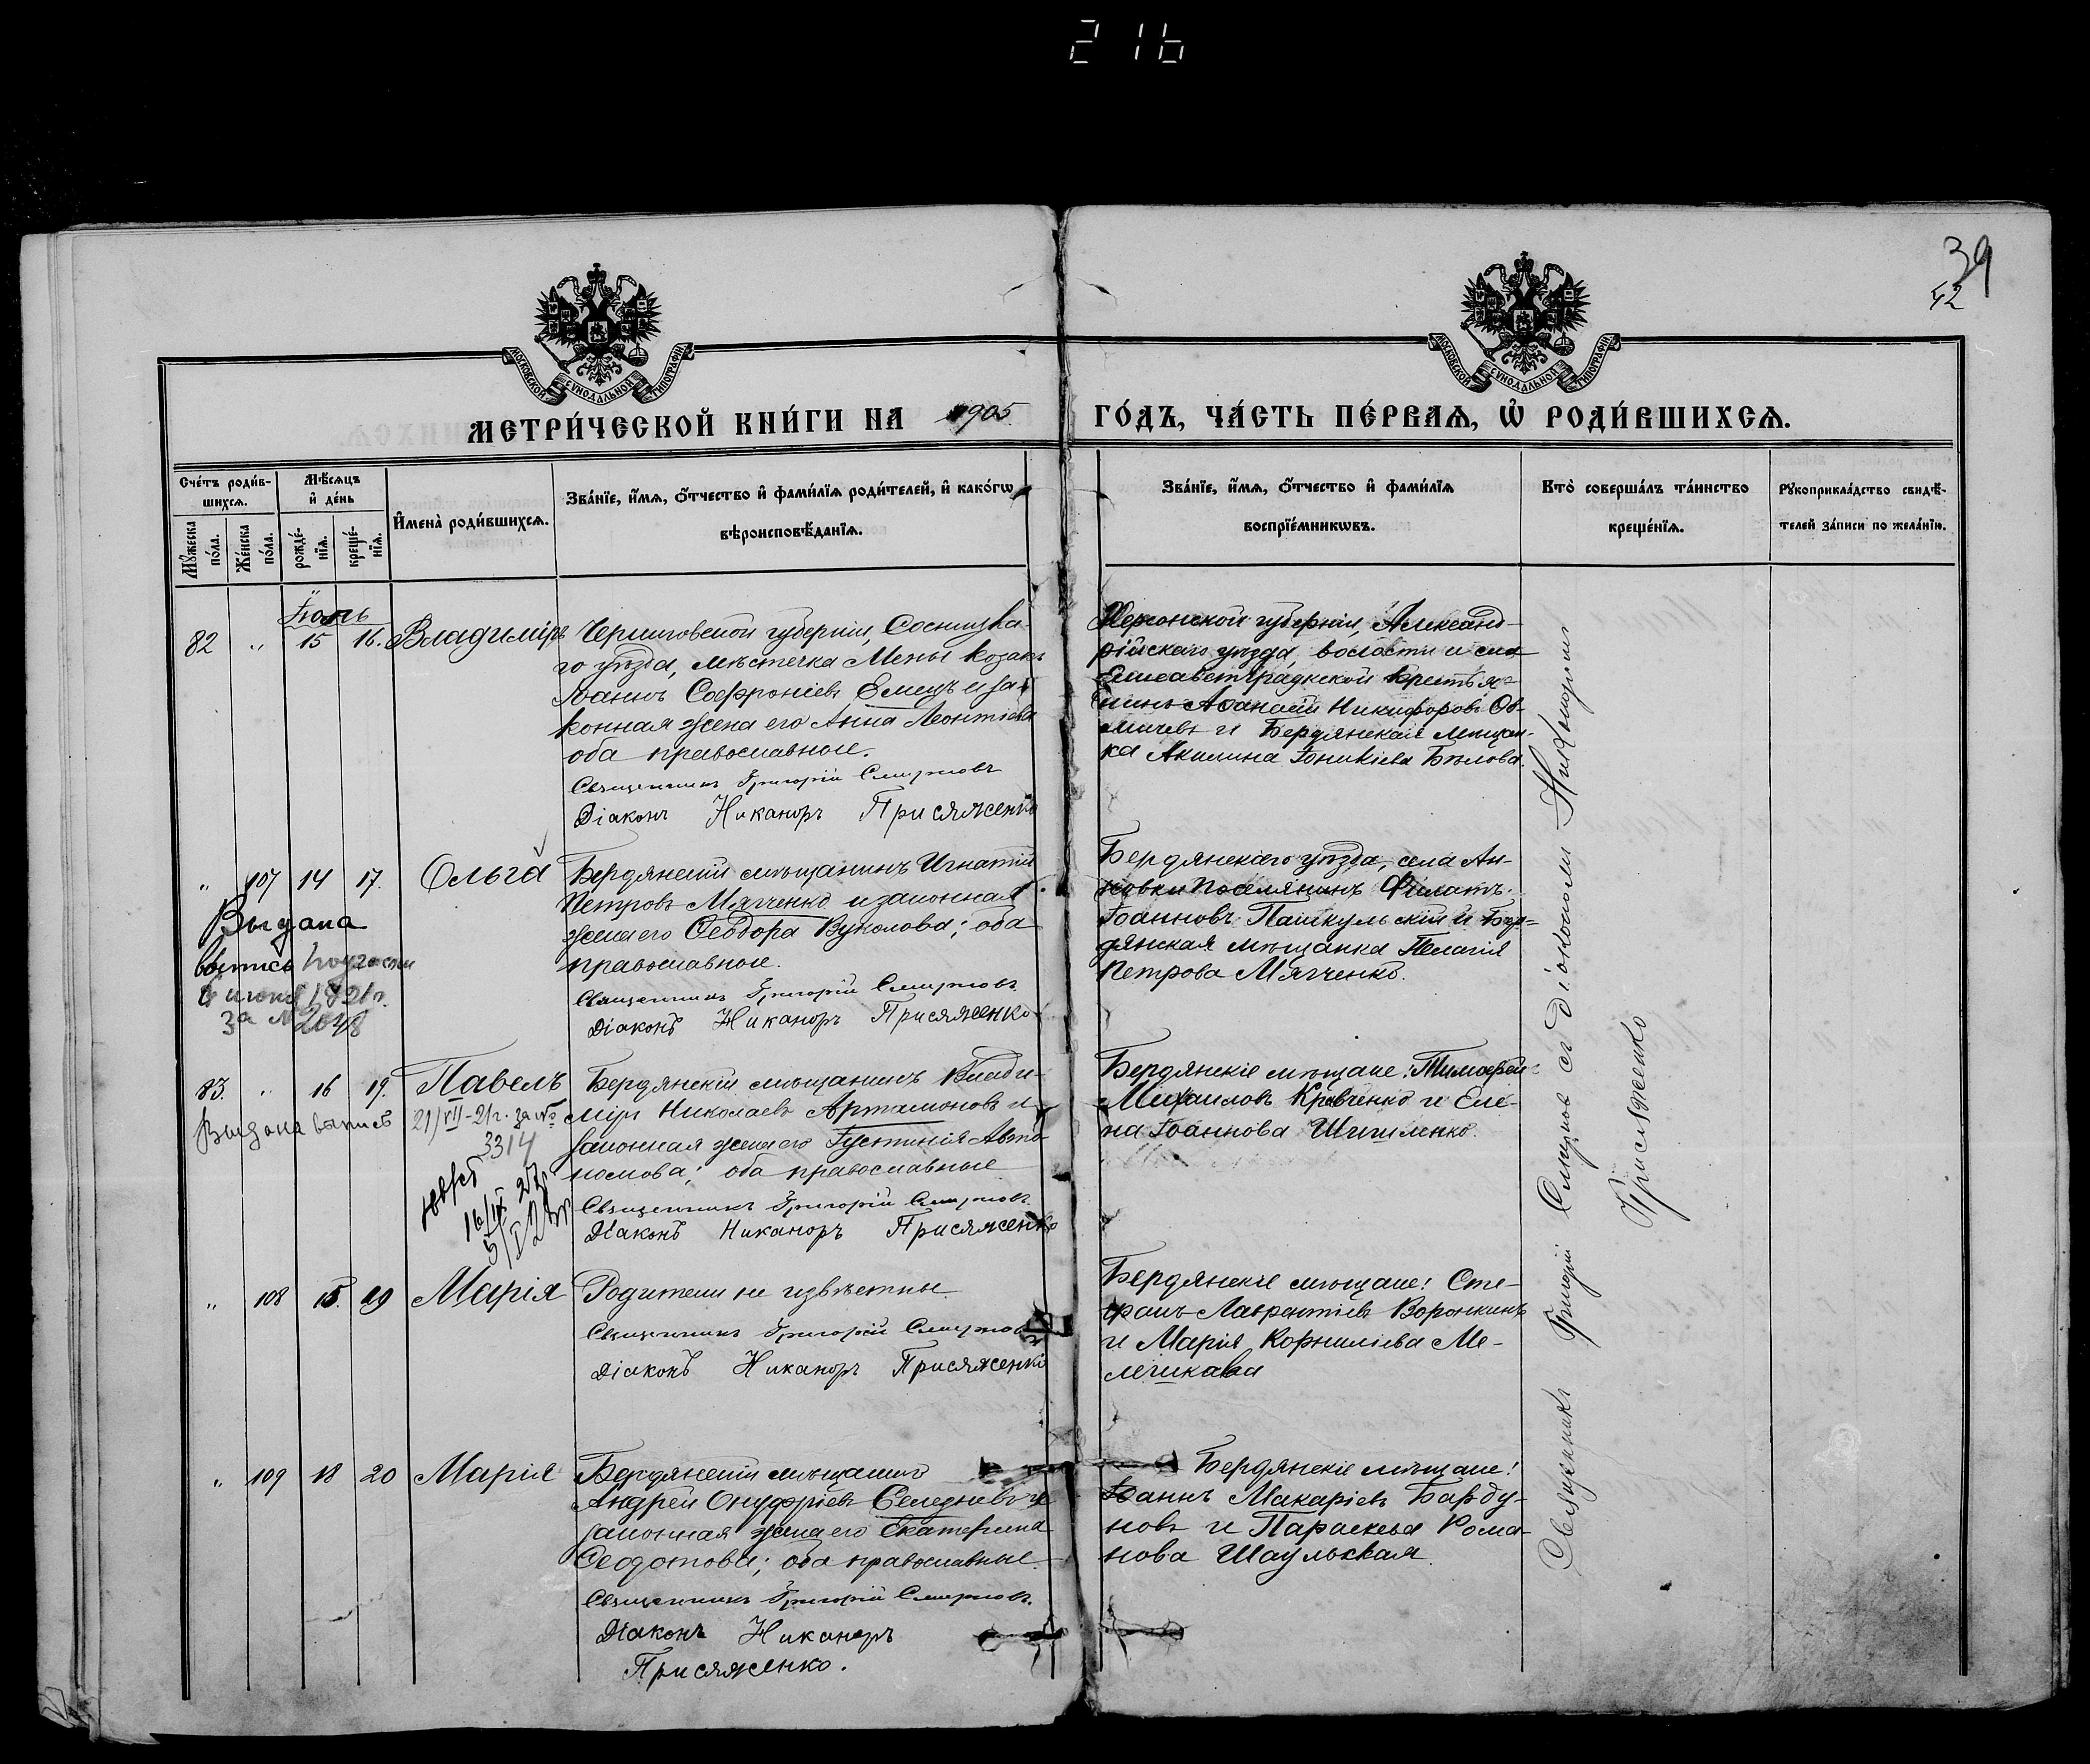 216
39
42
МОСКОВСКОЙ СУНОДАЛЬНОЙ ТИПОГРАФІИ
МОСКОВСКОЙ СУНОДАЛЬНОЙ ТИПОГРАФІИ
МЕТРИ́ЧЕСКОЙ КНИ́ГИ НА 1905. ГО́ДЪ, ЧА́СТЬ ПЕ́РВАЯ, Ѿ РОДИ́ВШИХСЯ.
Сче́тъ роди́в-
шихся.
Мѣ́сяцъ
и҆ де́нь
Мꙋ́жеска по́ла.
Же́нска по́ла.
рожде́-
нїя.
креще́-
нїя.
И҆мена̀ роди́вшихся.
Зва́нїе, и҆́мя, ѻ҆́тчество и҆ фами́лїя роди́телей, и҆ како́гѡ
вѣроисповѣ́данїя.
Зва́нїе, и҆́мя, ѻ҆́тчество и҆ фами́лїя
воспрїе́мникѡвъ.
Кто̀ соверша́лъ та́инство
креще́нїя.
Рꙋкоприкла́дство свидѣ́-
телей за́писи по жела́нїю.
82 " 15 16. Владиміръ
Черниговской губерніи, Сосницка-
го уѣзда, мѣстечка Мены козакъ
Іоаннъ Софроніевъ Емецъ и за-
конная жена его Анна Леонтіева
оба православные.
Священникъ Григорій Смирновъ
Діаконъ Никаноръ Присяженко
Херсонской губерніи, Александ-
рійскаго уѣзда, волости и села
Елисаветградской крестья-
нинъ Аѳанасій Никифоровъ
и Бердянская мѣщан-
ка Акилина Іоникіева Бѣлова.
" 107 14 17. Ольга
Выдана
выпись
1921г.
за № 2048
Бердянскій мѣщанинъ Игнатій
Петровъ Мягченко и законная
жена его Ѳеодора Вуколова; оба
православные.
Священникъ Григорій Смирновъ
Діаконъ Никаноръ Присяженко
Бердянскаго уѣзда, села Ан-
новки поселянинъ Филатъ
Іоанновъ Пашкульскій и Бер-
дянская мѣщанка Пелагія
Петрова Мягченко.
83. " 16 19. Павелъ
Выдана выпись 21/VII-21г. за №
3314
Бердянскій мѣщанинъ Влади-
міръ Николаевъ Артамоновъ и
законная жена его Іустинія Авто-
номова; оба православные
Священникъ Григорій Смирновъ
Діаконъ Никаноръ Присяженко
Бердянскіе мѣщане: Тимоѳей
Михаиловъ Кравченко и Еле-
на Іоаннова Шишленко.
" 108 15. 19 Марія
Родители не извѣстны
Священникъ Григорій Смирновъ
Діаконъ Никаноръ Присяженко
Бердянскіе мѣщане: Сте-
фанъ Лаврентіевъ Воронкинъ
и Марія Корниліева Ме-
лешкова
" 109 18 20 Марія
Бердянскій мѣщанинъ
Андрей Онуфріевъ Селезневъ и
законная жена его Екатерина
Ѳеодотова; оба православные
Священникъ Григорій Смирновъ.
Діаконъ Никаноръ
Присяженко.
Бердянскіе мѣщане:
Іоаннъ Макаріевъ Барду-
новъ и Параскева Рома-
нова Шаульская.
Священникъ Григорій Смирновъ съ діакономъ Никаноромъ
Присяженко